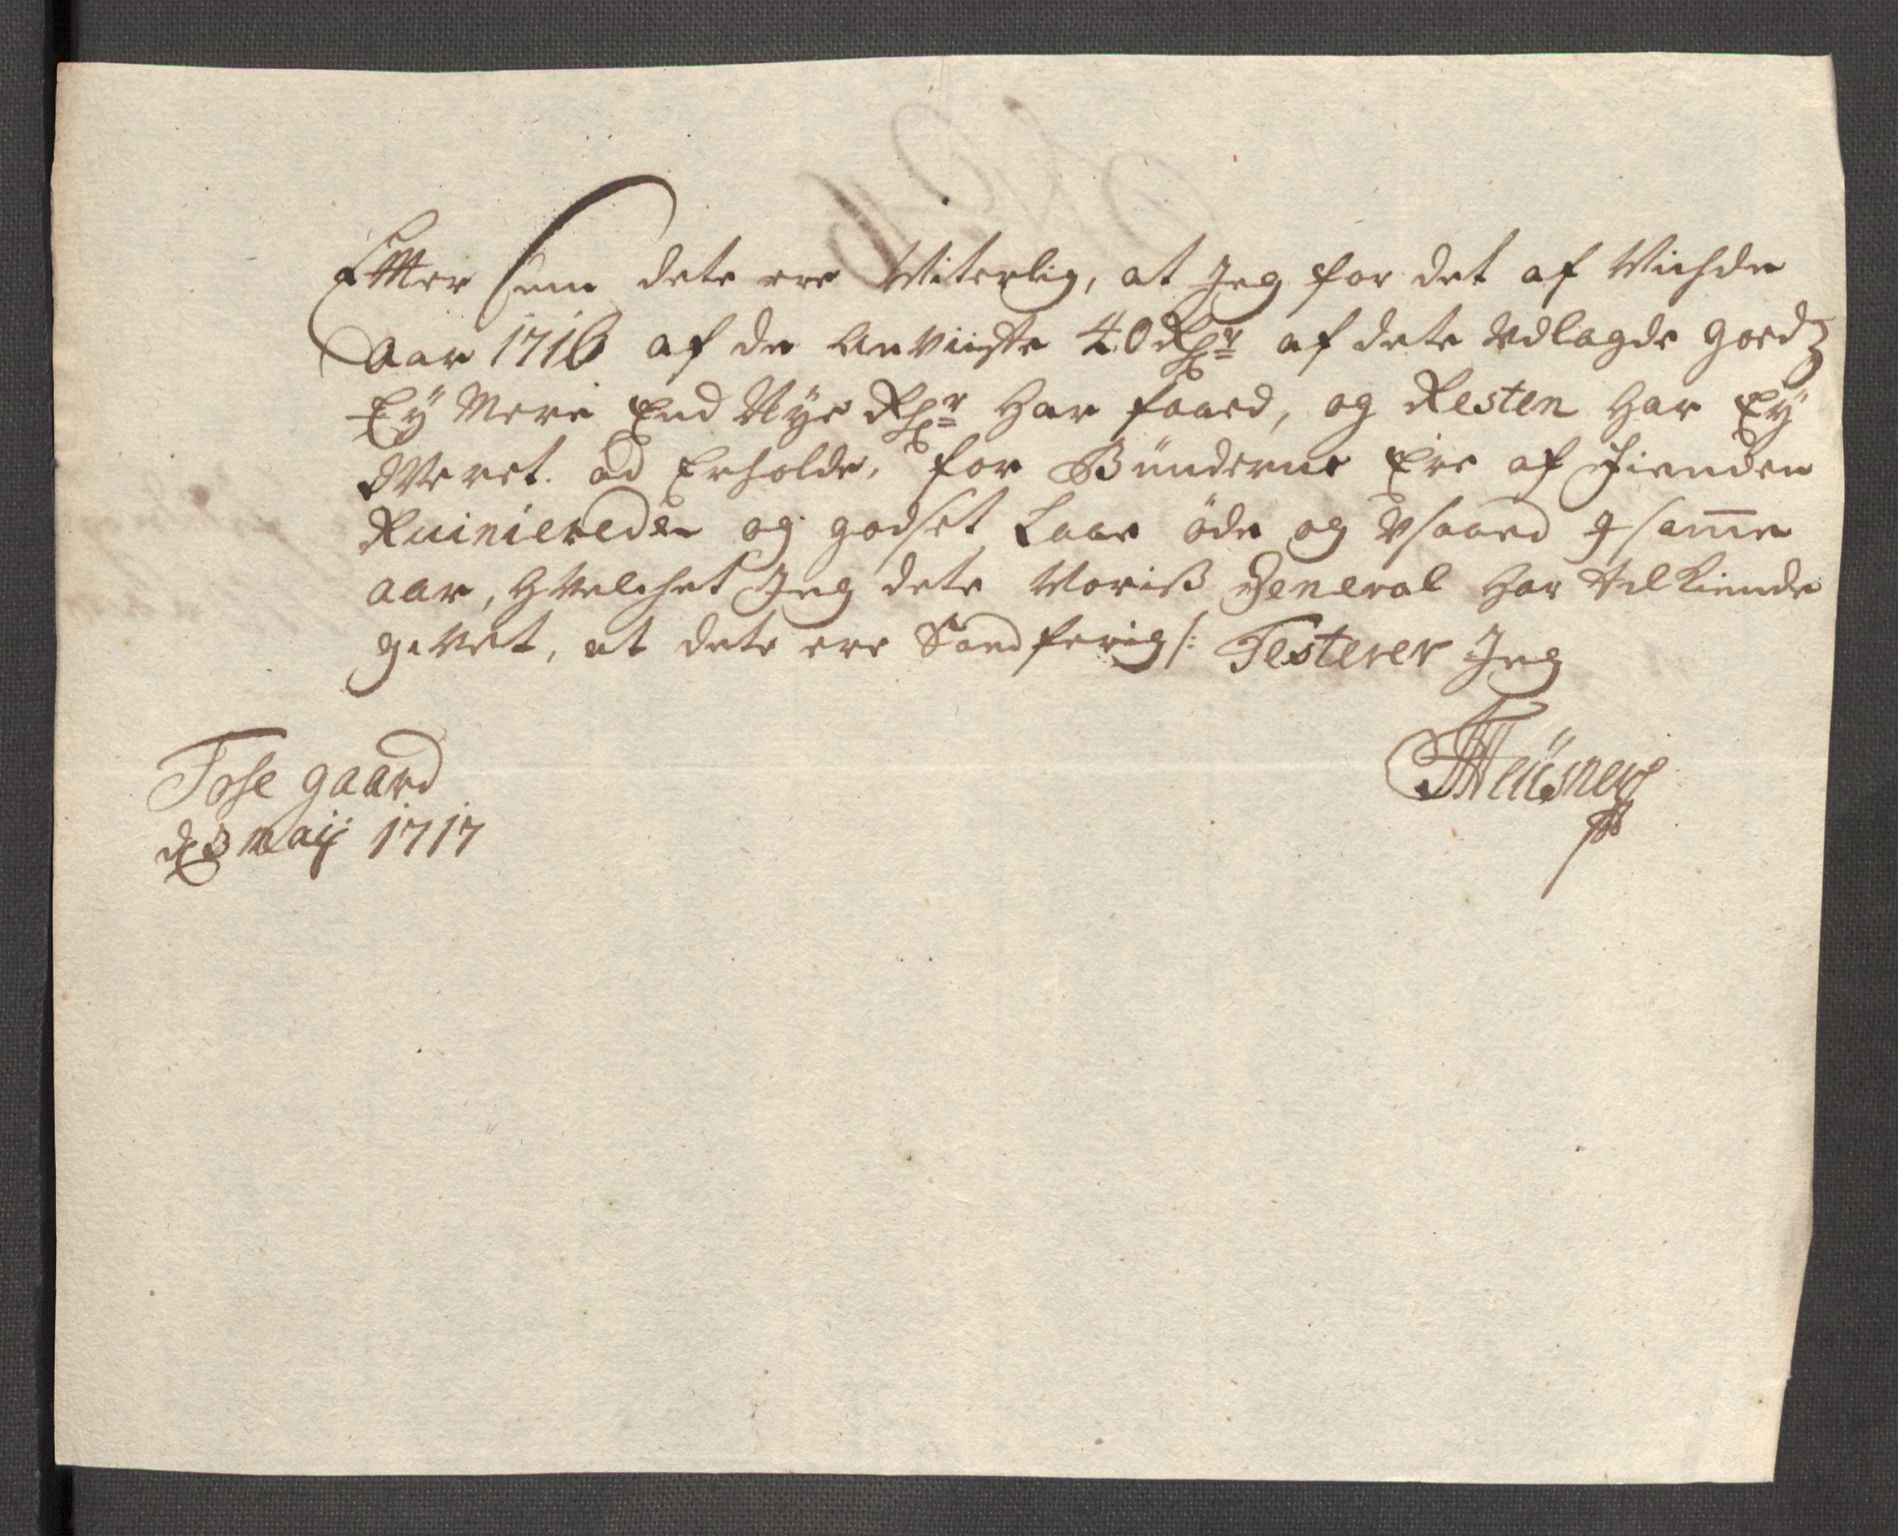 Effter som dete ere Witerlig, at Jeg for det af Wichde
Aar 1716 af de anviiste 40 Rdr af dete Udlagde goedz
Ey Mere End Nye Rdr har faaed, og Resten har Ey
Weret ad Erholde, for Bünderne Ere af Fienden
Ruinierede og godset Laae öde og Usaaed g samme
aar, hvelchet Jeg dete Woriß General har tilkiende
givet, at dete ere Sandferig /: Testerer Jeg
Tose gaard
d 3 maij 1717